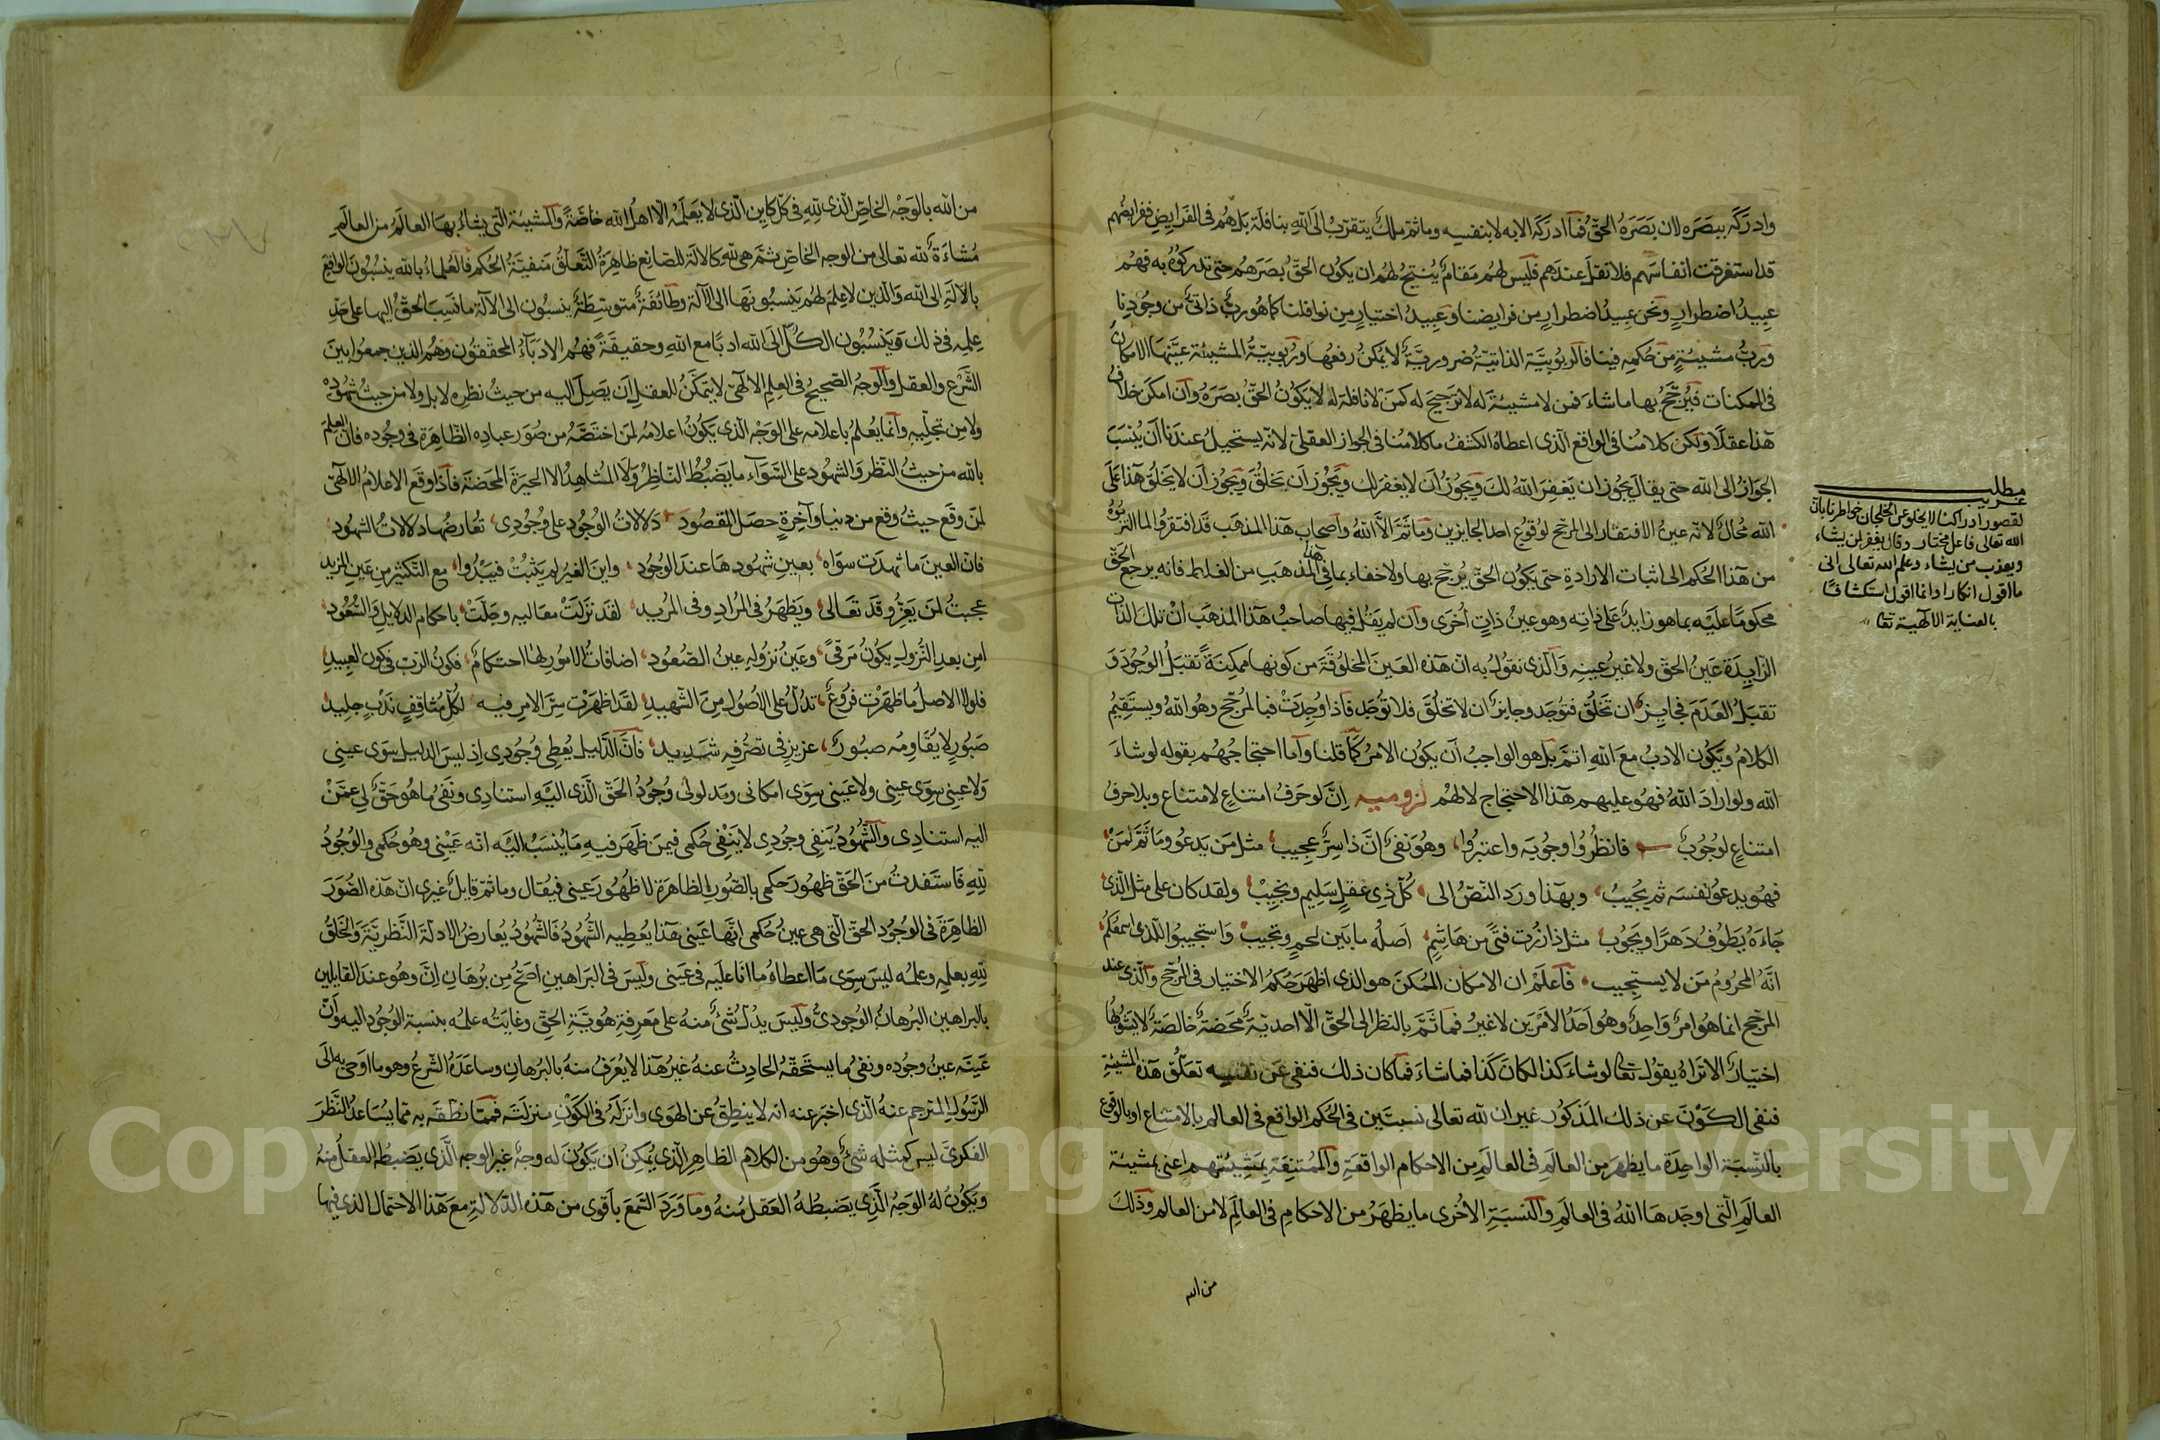 وادركه ببصره لان بصره الحق فما ادركه الا به لا بنفسه وما ثم ملك يتقرب الى الله بنافلة بل هم في الفرايض ففرايضهم
قد استغرقت انفاسهم فلا نفل عندهم فليس لهم مقام ينتج لهم ان يكون الحق بصرهم حتى تدركوه به فهم
عبيد اضطرار ونحن عبيد اضطرار من فرايضنا وعبيد اختيار من نوافلنا كما هو رب ذاتي من وجودنا
ورب مشيئة من حكمه فينا فالربوبية الذاتية ضرورية لا يمكن رفعها وربوبية المشيئة عينها الامكان
في الممكنات فيرجح بها ما شاء فمن لا مشيئة له لا ترجيح له كمن لا نافلة له لا يكون الحق بصره وان امكن خلاف
هذا عقلا ولكن كلامنا في الواقع الذي اعطاه الكشف ما كلامنا في الجواز العقلي لانه يستحيل عندنا ان ينسب
الجواز الى الله حتى يقال يجوز ان يغفر الله لك ويجوز ان لا يغفر لك ويجوز ان يخلق ويجوز ان لا يخلق هذا على
الله محال لانه عين الافتقار الى المرجح لوقوع احد الجايزين وما ثم الا الله واصحاب هذا المذهب قد افتقروا لما التزموه
من هذا الحكم الى اثبات الارادة حتى يكون الحق يرجح بها ولا خفاء بما في هذا المذهب من الغلط فانه يرجع الحق
محكوما عليه بما هو زايد على ذاته وهو عين ذات اخرى وان لم يقل فيها صاحب هذا المذهب ان تلك الذات
الزايدة عين الحق ولا غير عينه والذي نقول به ان هذه العين المخلوقة من كونها ممكنة تقبل الوجود و
تقبل العدم فجايز ان تخلق فتوجد وجايز ان لا تخلق فلا توجد فاذا وجدت فبالمرجح وهو الله ويستقيم
الكلام ويكون الادب مع الله اتم بل هو الواجب ان يكون الامر كما قلنا واما احتجاجهم بقوله لو شاء
الله ولو اراد الله فهو عليهم هذا الاحتجاج لا لهم لزومية ان لو حرف امتناع لامتناع وبلا حرف
امتناع لوجوب فانظروا وجوبه واعتبروا وهو نفي ان ذا سر عجيب مثل من يدعو وما ثم لمن
فهو يدعو نفسه ثم يجيب وبهذا ورد النص الى كل ذي عقل سليم ونجيب ولقد كان على مثل الذي
جاءه يطوف دهرا ويجوب مثل ذا زرت فتى من هاشم اصله ما بين لحم ونجيب واستجيبوا للذي اسمعكم
انه المحروم من لا يستجيب فاعلم ان الامكان للممكن هو الذي اظهر حكم الاختيار في المرجح والذي عند
المرجح انما هو امر واحد وهو احد الامرين لا غير فما ثم بالنظر الى الحق الا احدية محضة خالصة لا يشوبها
اختيار الا تراه يقول تعالى لو شاء كذا لكان كذا فما شاء فما كان ذلك فنفى عن نفسه تعلق هذه المشيئة
فنفى الكون عن ذلك المذكور غير ان لله تعالى نسبتين في الحكم الواقع في العالم بالامتناع او بالوقوع
بالنسبة الواحدة ما يظهر من العالم في العالم من الاحكام الواقعة والممتنعة بمشيئتهم اعني بمشيئة
العالم التي اوجدها الله في العالم والنسبة الاخرى ما يظهر من الاحكام في العالم لا من العالم وذلك
من الله
مطلب غريب
لقصور ادراكنا لا يخلو عن الخلجان خواطرنا بان
الله تعالى فاعل مختار وقال يغفر لمن يشاء
ويعذب من يشاء وعلم الله تعالى اني
ما اقول انكارا وانما اقول استكشافا
بالعناية الالهية تعا
من الله بالوجه الخاص الذي لله في كل كاين الذي لا يعلمه الا اهل الله خاصة والمشيئة التي يشاء بها العالم من العالم
مشاءة لله تعالى من الوجه الخاص ثم هي لله كالآلة للصانع ظاهرة التعلق منفية الحكم فالعلماء بالله ينسبون الواقع
بالآلة الى الله والذين لا علم لهم ينسبونها الى الآلة وطائفة متوسطة ينسبون الى الآلة ما نسب الحق اليها على حد
علمه في ذلك وينسبون الكل الى الله ادبا مع الله وحقيقة فهم الادباء المحققون وهم الذين جمعوا بين
الشرع والعقل والوجه الصحيح في العلم الالهي لا يتمكن للعقل ان يصل اليه من حيث نظره لا بل ولا من حيث شهوده
ولا من تجليه وانما يعلم باعلامه على الوجه الذي يكون اعلامه لمن اختصه من صور عباده الظاهرة في وجوده فان العلم
بالله من حيث النظر والشهود على السواء ما يضبط الناظر ولا المشاهد الا الحيرة المحضة فاذا وقع الاعلام الالهي
لمن وقع حيث وقع من دنيا وآخرة حصل المقصود دلالات الوجود على وجودي تعارضها دلالات الشهود
فان العين ما شهدت سواه بعين شهودها عند الوجود واين الغير لم يثبت فيبدوا مع التكثير من عين المزيد
عجبت لمن يعز وقد تعالى ويظهر في المراد وفي المريد لقد نزلت معاليه وجلت باحكام الدلايل والشهود
امن بعد النزول يكون مرقى وعين نزوله عين الصعود اضافات الامور لها احتكام فكون الرب في كون العبيد
فلولا الاصل ما ظهرت فروع تدل على الاصول من الشهيد لقد اظهرت سر الامر فيه لكل مثاقف ندب جليد
صبور لا يقاومه صبور عزيز في تصرفه شديد فان الدليل يعطي وجودي اذ ليس الدليل سوى عيني
ولا عيني سوى عيني ولا عيني سوى امكاني ومدلولي وجود الحق الذي اليه استنادي ونفى ما هو حق لي عمن
اليه استنادي والشهود ينفي وجودي لا ينفي حكمي فيمن ظهر فيه ما ينسب اليه انه عيني وهو حكمي والوجود
لله فاستفدت من الحق ظهور حكمي بالصور الظاهرة لا ظهور عيني فيقال وما ثم قايل غيري ان هذه الصور
الظاهرة في الوجود الحق التي هي عين حكمي انها عيني هذا يعطيه الشهود فالشهود يعارض الادلة النظرية والخلق
لله بعلمه وعلمه ليس سوى ما اعطاه ما انا عليه في عيني وليس في البراهين اصح من برهان ان وهو عند القايلين
بالبراهين البرهان الوجودي وليس يدل شيء منه على معرفة هوية الحق وغايته علمه بنسبة الوجود اليه وان
عينه عين وجوده ونفي ما يستحقه الحادث عنه غير هذا لا يعرف منه بالبرهان وساعده الشرع وهو ما اوحى به الى
الرسول المترجم عنه الذي اخبر عنه انه لا ينطق عن الهوى وانزله في الكون منزلته فمما نطق به مما يساعد النظر
الفكري ليس كمثله شيء وهو من الكلام الظاهر الذي يمكن ان يكون له وجه غير الوجه الذي يضبطه العقل منه
ويكون له الوجه الذي يضبطه العقل منه وما ورد السمع باقوى من هذه الدلالة مع هذا الاحتمال الذي فيها
Copyright © King Saud University